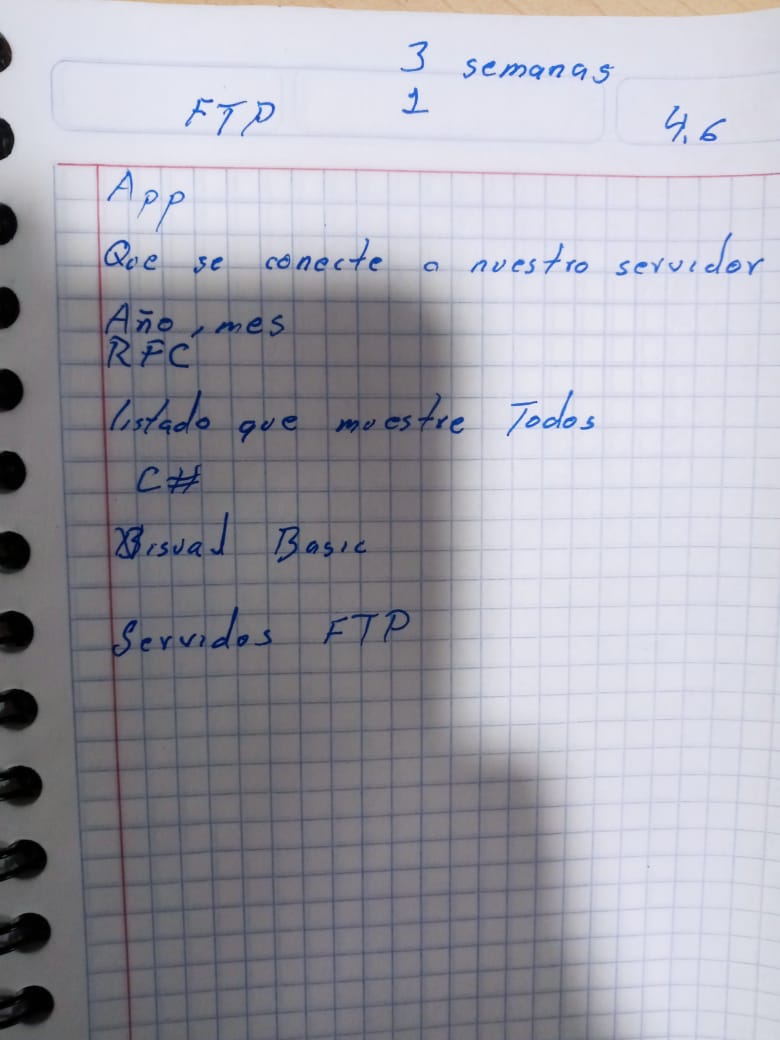 3 semanas
FTP 1 4.6
App
Que se conecte a nuestro servidor
Año, mes
RFC
listado que muestre Todos
C#
Visual Basic
Servidos FTP